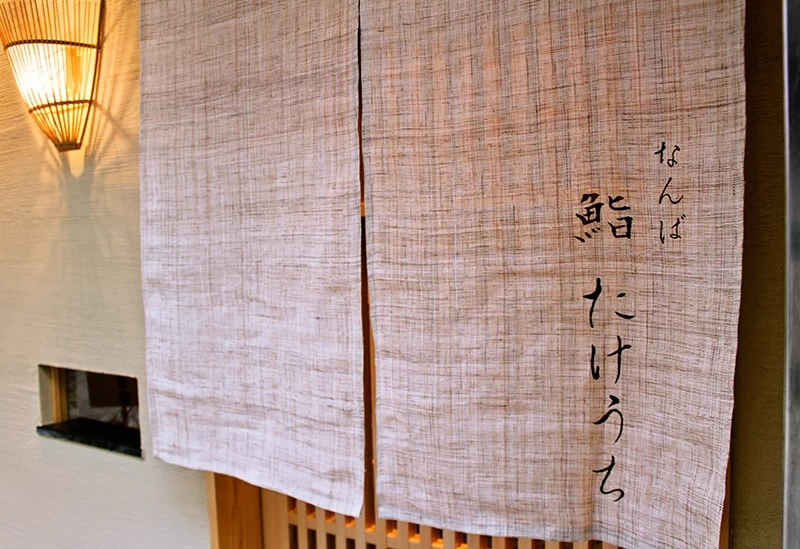 なんば
鮨 たけうち